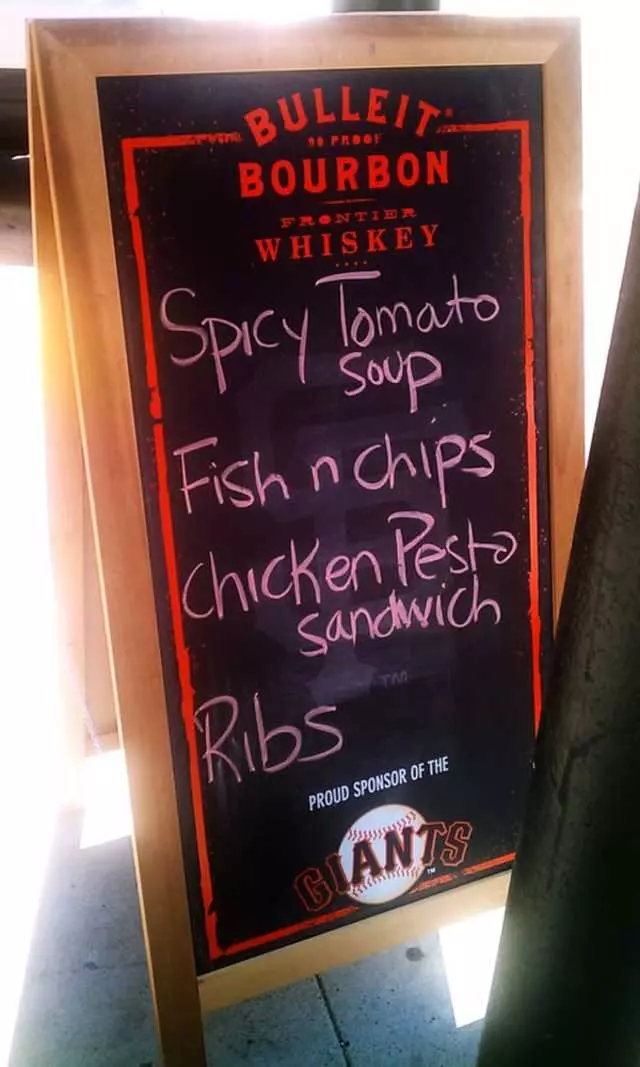 BULLEIT
90 PROOF
BOURBON
FRONTIER
WHISKEY
Spicy Tomato
Soup
Fish n chips
Chicken Pesto
sandwich
TM
Ribs
PROUD SPONSOR OF THE
GIANTS
TM